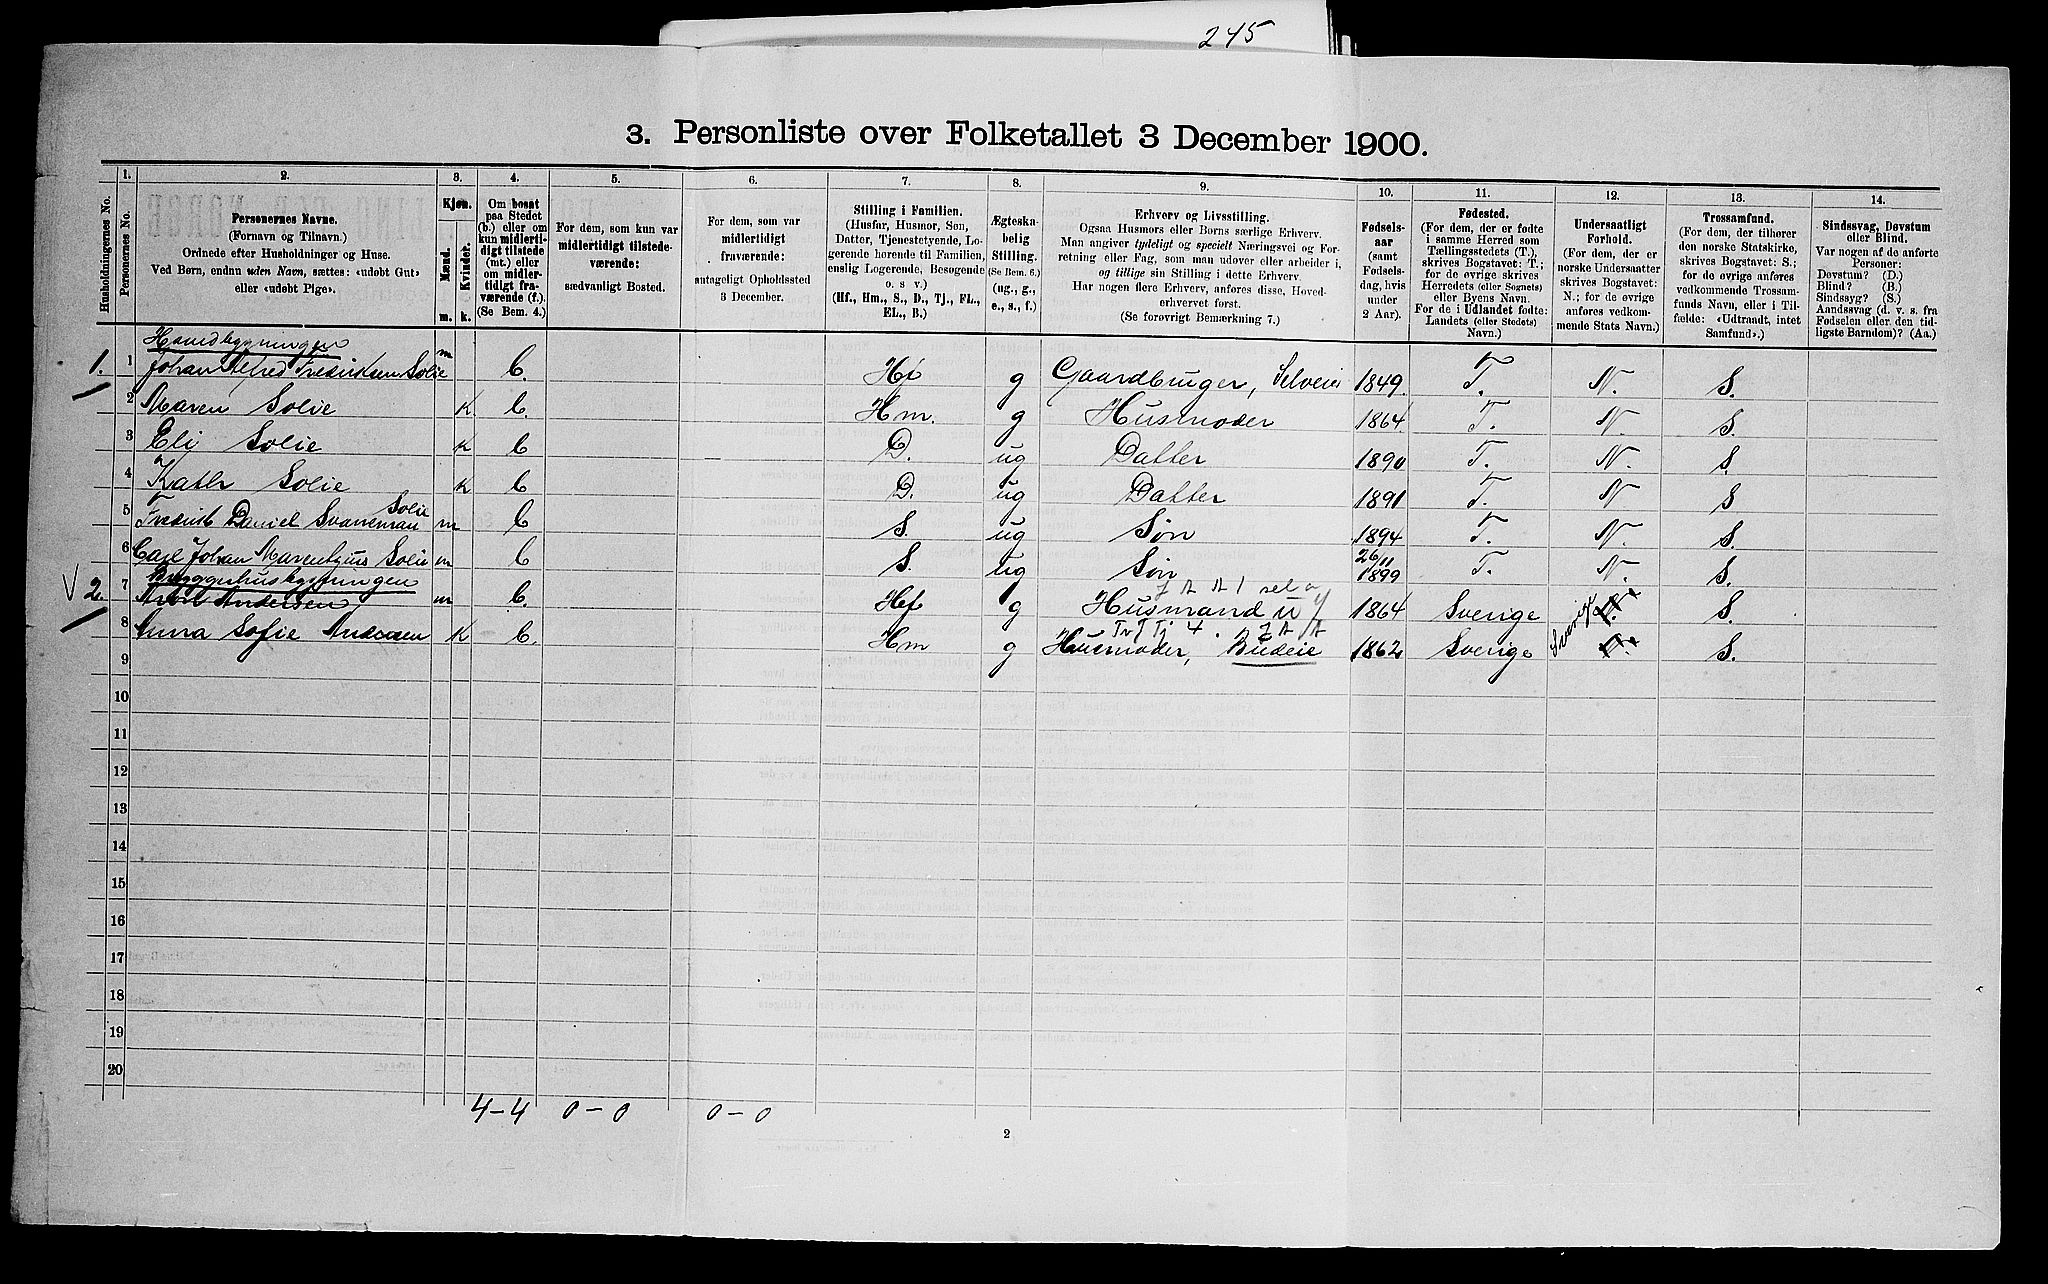 245
3. Personliste over Folketallet 3 December 1900.
Husholdningernes No.
1.
Personernes No.
2.
Personernes Navne.
(Fornavn og Tilnavn.)
Ordnede efter Husholdninger og Huse.
Ved Børn, endnu uden Navn, sættes: «udøbt Gut»
eller «udøbt Pige».
3.
Kjøn.
Mænd.
Kvinder.
m.
k.
4.
Om bosat
paa Stedet
(b.) eller om
kun midlerti-
digt tilstede
(mt.) eller
om midler-
tidigt fra-
værende (f.).
(Se Bem. 4.)
5.
For dem, som kun var
midlertidigt tilstede-
værende:
sædvanligt Bosted.
6.
For dem, som var
midlertidigt
fraværende:
antageligt Opholdssted
3 December.
7.
Stilling i Familien.
(Husfar, Husmor, Søn,
Datter, Tjenestetyende, Lo-
gerende hørende til Familien,
enslig Logerende, Besøgende
o. s. v.)
(Hf., Hm., S., D., Tj., FL.,
EL., B.)
8.
Ægteska-
belig
Stilling.
(Se Bem. 6.)
(ug., g.,
e., s., f.)
9.
Erhverv og Livsstilling.
Ogsaa Husmors eller Børns særlige Erhverv.
Man angiver tydeligt og specielt Næringsvei og For-
retning eller Fag, som man udover eller arbeider i,
og tillige sin Stilling i dette Erhverv.
Har nogen flere Erhverv, anføres disse, Hoved-
erhvervet først.
(Se forøvrigt Bemærkning 7.)
10.
Fødsels-
aar
(samt
Fødsels-
dag, hvis
under
2 Aar).
11.
Fødested.
(For dem, der er fødte
i samme Herred som
Tællingsstedets (T.),
skrives Bogstavet: T.;
for de øvrige skrives
Herredets (eller Sognets)
eller Byens Navn.
For de i Udlandet fødte:
Landets (eller Stedets)
Navn.)
12.
Undersaatligt
Forhold.
(For dem, der er
norske Undersaatter
skrives Bogstavet:
N.; for de øvrige
anføres vedkom-
mende Stats Navn.)
13.
Trossamfund.
(For dem, der tilhører
den norske Statskirke,
skrives Bogstavet: S.;
for de øvrige anføres
vedkommende Trossam-
funds Navn, eller i Til-
fælde: «Udtraadt, intet
Samfund».)
14.
Sindssvag, Døvstum
eller Blind.
Var nogen af de anførte
Personer:
Døvstum? (D.)
Blind? (B.)
Sindssyg? (S.)
Aandssvag (d. v. s. fra
Fødselen eller den tid-
ligste Barndom)? (Aa.)
Hovedbygningen
1. 1 Johan Alfred Fredriksen Solie m b. Hf g Gaardbruger, Selveier 1849. T. N. S.
2 Maren Solie K b. Hm. g Husmoder 1864 T. N. S.
3 Eli Solie K b D. ug Datter 1890 T. N. S.
4 Kath Solie K b D. ug Datter 1891 T. N S
Solie
5 Fredrik Daniel Svaneman m b S. ug Søn 1894 T. N. S.
6 Carl Johan Solie m b S. ug Søn 26/11 1899 T. N. S.
Bryggerhusbygningen
V 2. 7 Andersen m b. Hf g Husmand u J 1864 Sverige Sverige N. S.
8 Anna Sofie Andersen K b. Hm g Husmoder, Budeie 1862 Sverige N. S.
9
10
11
12
13
14
15
16
17
18
19
20
4-4 0-0 0-0
2